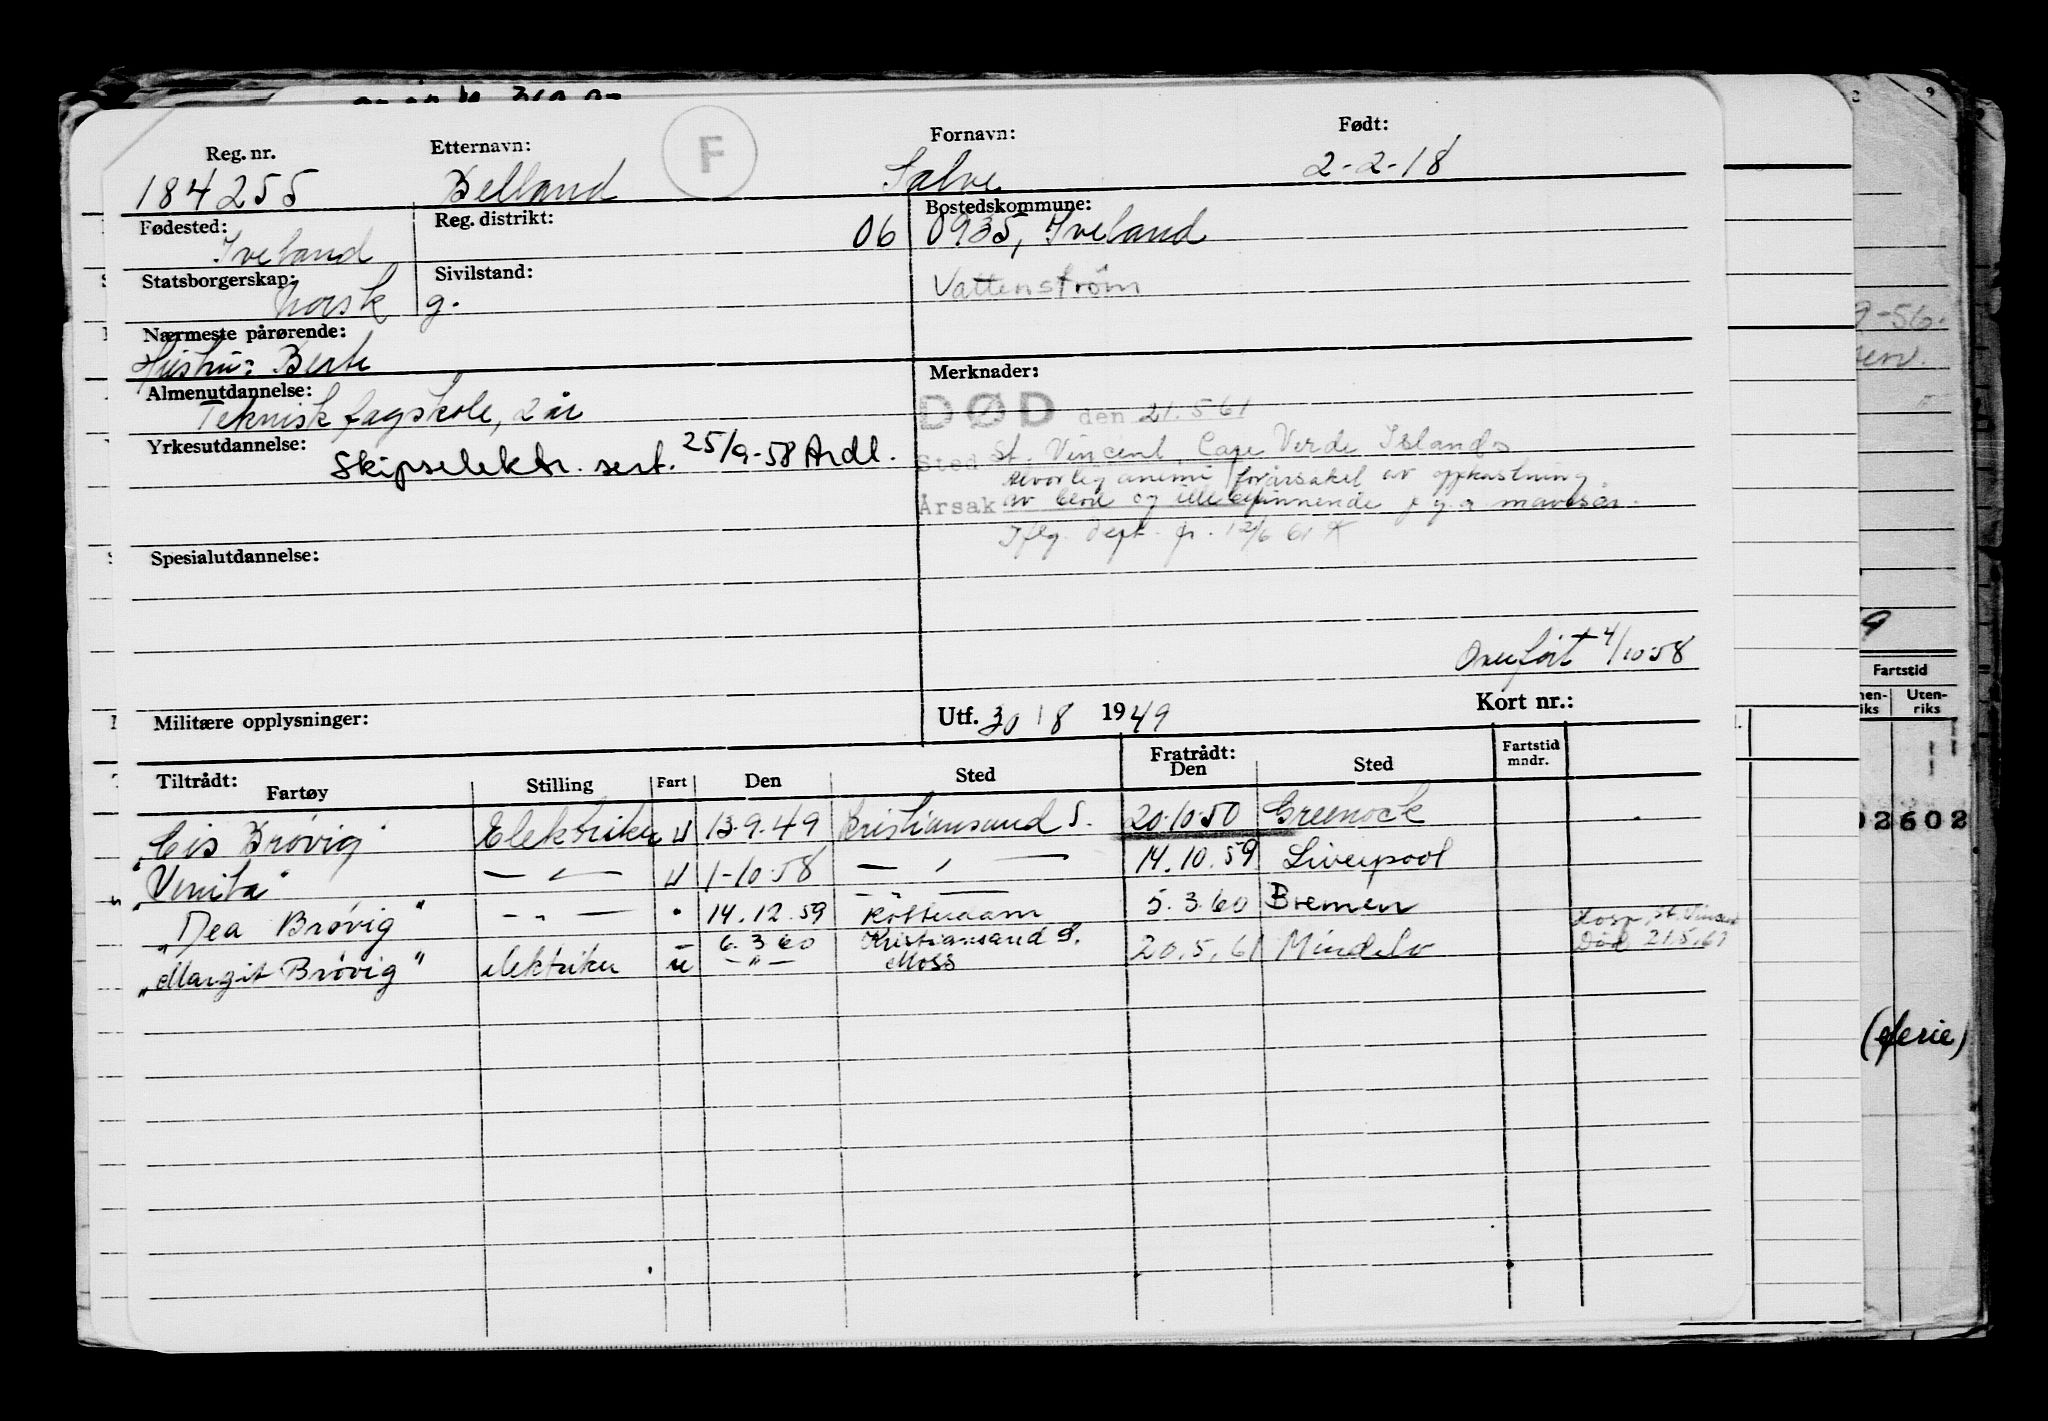 Reg. nr. Etternavn: F Fornavn: Født:
184255 Belland Salve 2-2-18
Fødested: Reg. distrikt: Bostedskommune:
Iveland 06 0935, Iveland
Statsborgerskap: Sivilstand: Vattenstrøm
norsk g.
Nærmeste pårørende:
Hustru: Berte
Almenutdannelse: Merknader:
Teknisk fagskole, 2 år DØD den 21.5.61
Yrkesutdannelse: Sted St. Vincent, Cape Verde Islands
Skipselektr. sert. 25/9-58 Ardl.
alvorlig anemi forårsaket av oppkastning
Årsak av blod og ille befinnende p.g.a. mavesår.
Iflg. dept. 12/6 61
Spesialutdannelse:
Overført 4/10-58
Militære opplysninger: Utf. 30/8 1949 Kort nr.:
Tiltrådt: Fratrådt: Fartstid
Fartøy Stilling Fart Den Sted Den Sted mndr.
"Cis Brøvig" Elektriker U 13.9.49 Kristiansand S. 20.10.50 Greenock
"Venita" — " — U 1-10-58 — " — 14.10.59 Liverpool
"Dea Brøvig" — " — " 14.12.59 Rotterdam 5.3.60 Bremen
6.3.60 Kristiansand S. Hosp. St. Vincent
"Margit Brøvig" elektriker u — " — Moss 20.5.61 Mindelo Død 21.5.61
9-56.
Fartstid
Uten-
riks
02602
(ferie)